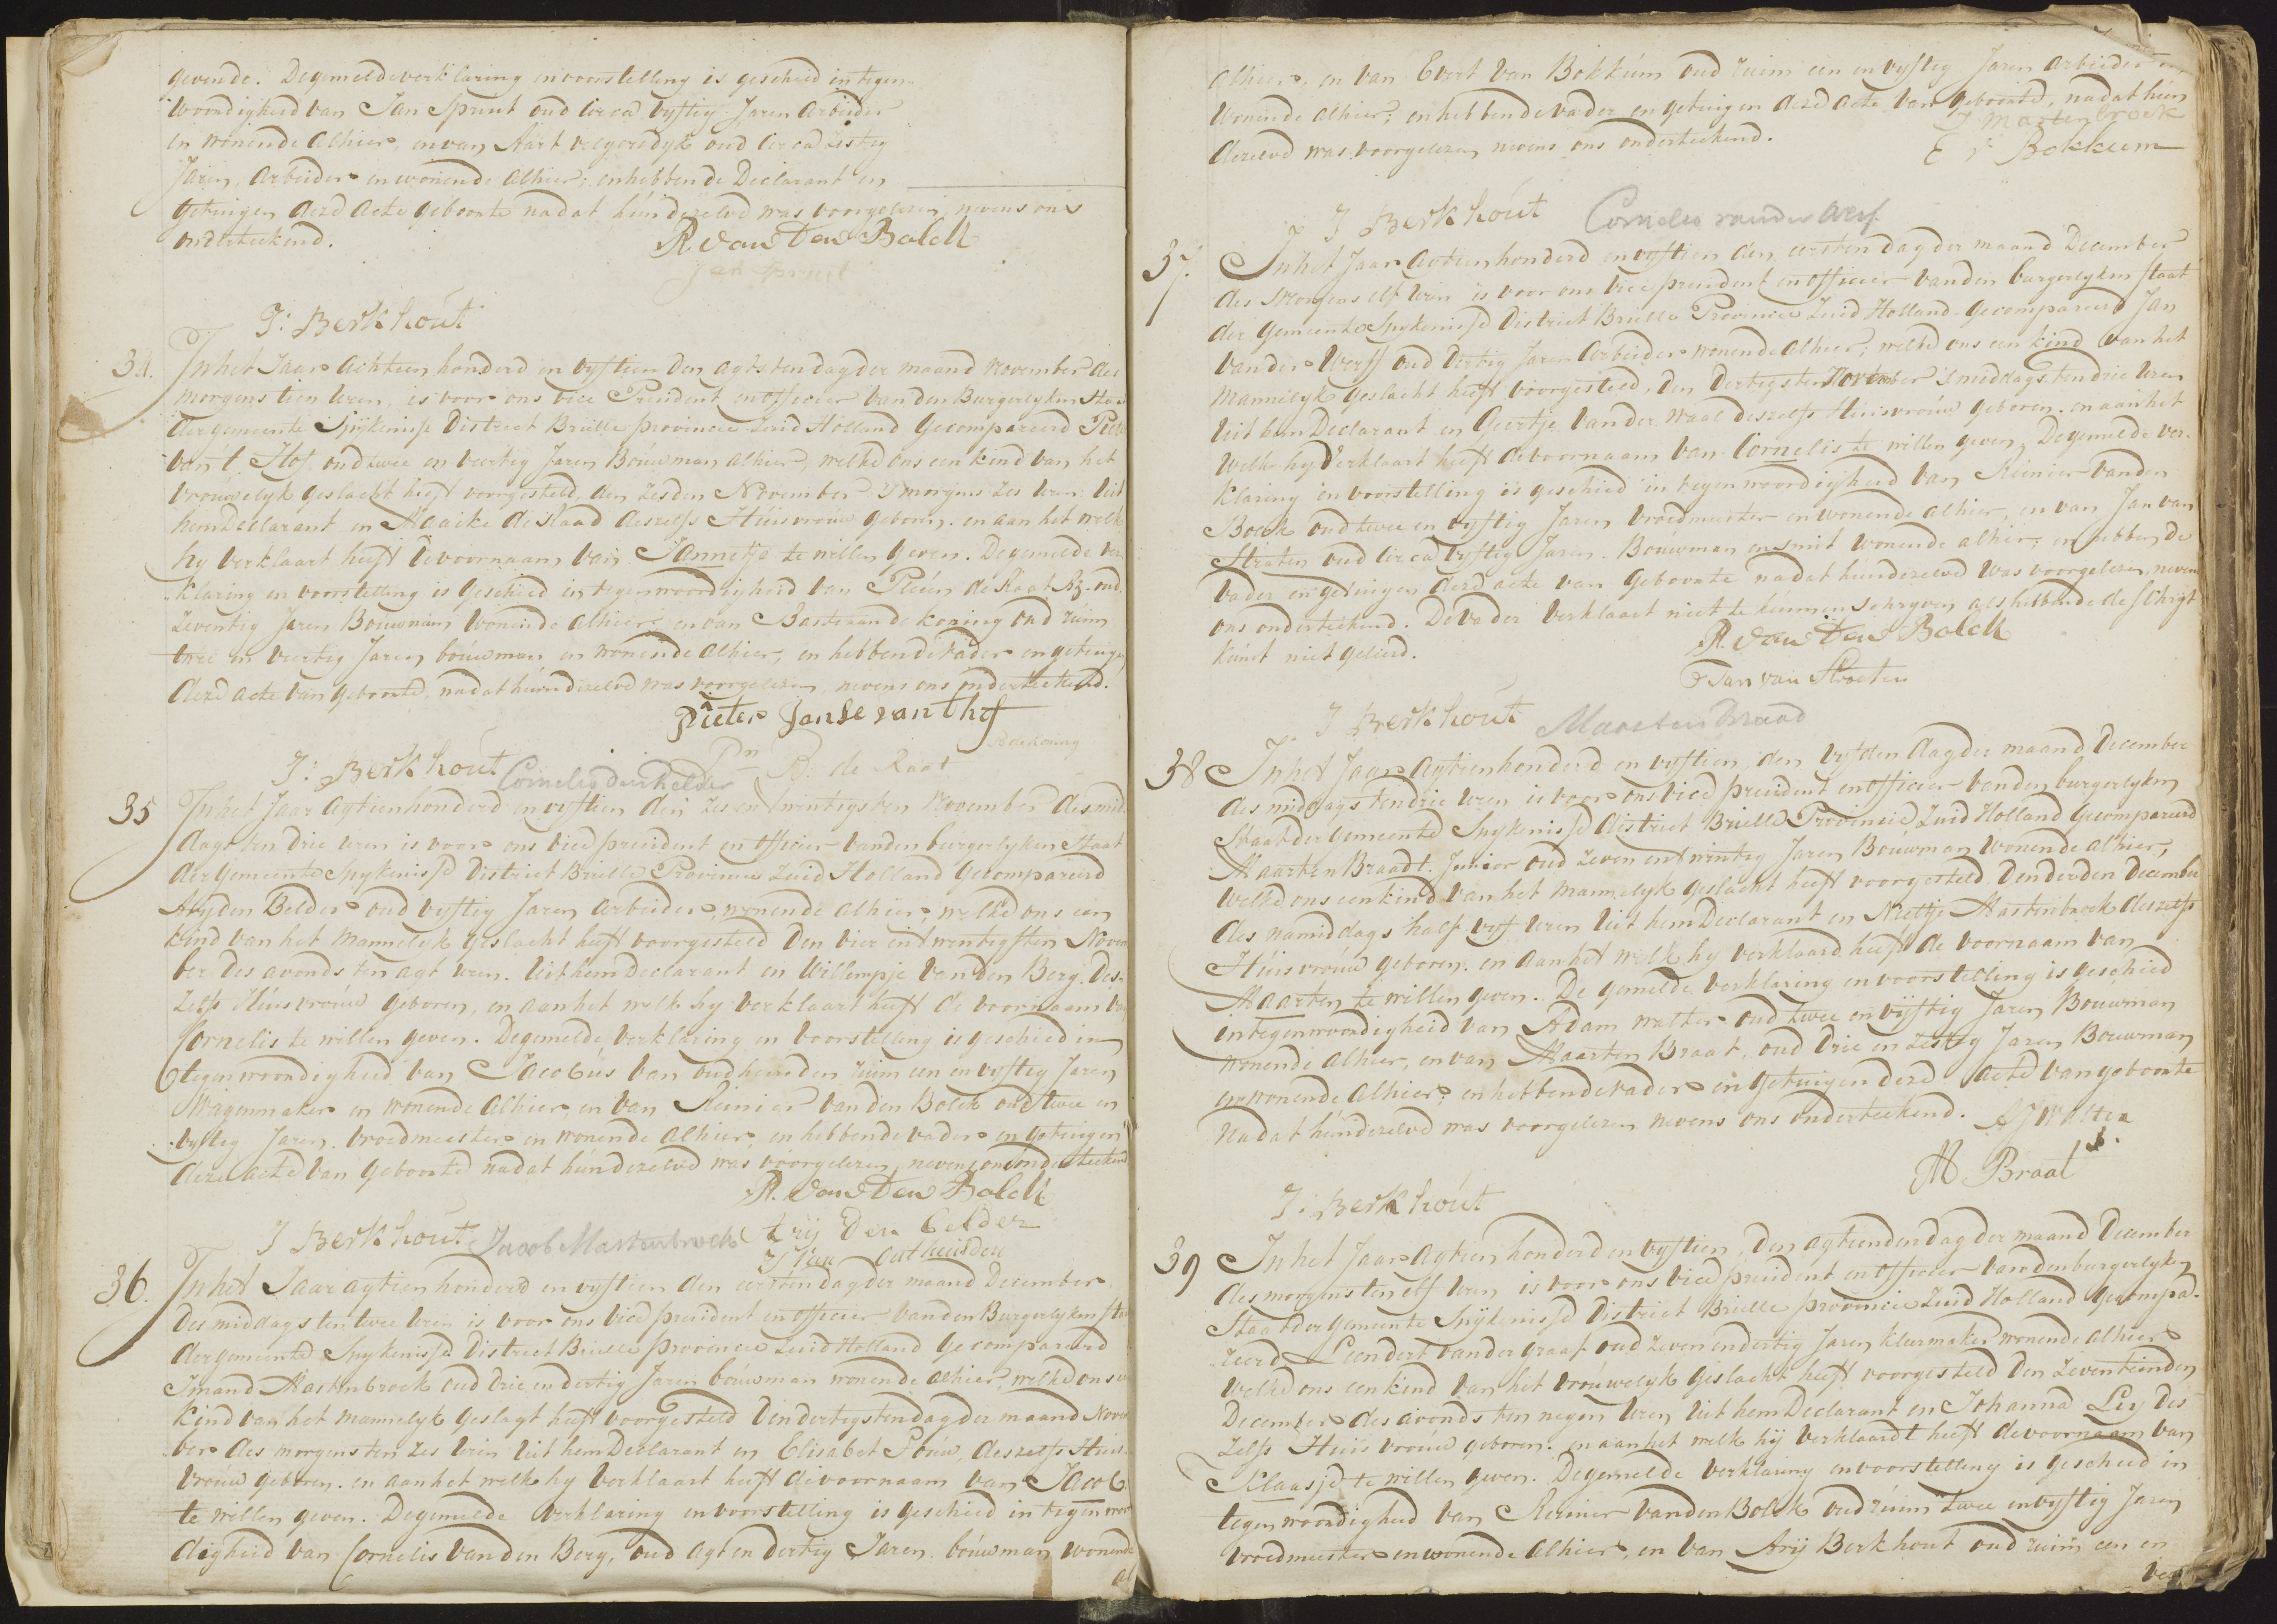 gevende. De gemelde verklaring en voorstelling is geschied in tegen-
woordigheid van Jan Spruit oud circa vyftig Jaren arbeider
en wonende alhier, en van Aart oud circa zestig
Jaren, arbeider en wonende alhier; en hebbende Declarant en
getuigen deze acte geboorte nadat hún dezelve was voorgelezen, nevens ons
onderteekend.
R. van den Bolck
Jan Spruit
J: Berkhout
34.
In het Jaar achtien honderd en vyftien den agtsten dag der maand November des
morgens tien uren, is voor ons vice President en officier van den Burgerlyken Staa
der gemeente Spijkenisse District Brielle provincie Zuid Holland Gecompareerd Piete
van 't Hof oud twee en veertig Jaren Bouwman alhier, welke ons een kind van het
vrouwelyk geslacht heeft voorgesteld, den zesden November 's morgens zes uren: uit
hem Declarant en Maaike de Raad deszelfs Húisvrouw geboren. en aan het welk
hy verklaart heeft de voornaam van Jannetje te willen geven. De gemelde ver
klaring en voorstelling is geschied in tegenwoordigheid van de Raat Az. oud
zeventig Jaren Bouwman wonende alhier en van Bastiaan de koning oud ruim
twee en veertig Jaren bouwman en wonende alhier, en hebbende vader en getuigen
deze acte van geboorte nadat hún dezelve was voorgelezen, nevens ons onderteekend.
Pieter Janse van t hof
B de Koning
Pn A: de Raat
J: Berkhout
Cornelis den helder
35
In het Jaar agtien honderd en vyftien den zes en twintigsten November des mid-
dags ten drie uren is voor ons vice president en officier van den burgerlyken Staat
der gemeente Spykenisse District Brielle Provincie Zuid Holland gecompareerd
Ary den Belder oud vyftig Jaren arbeider, wonende alhier, welke ons een
kind van het mannelyk geslacht heeft voorgesteld den vier en twentigsten Novem
ber des avonds ten agt uren. uit hem Declarant en Willempje van den Berg. des-
zelfs Húisvroúw geboren, en aan het welk hy verklaart heeft de voornaam van
Cornelis te willen geven. De gemelde verklaring en voorstelling is geschied in
tegenwoordigheid van Jacobús van oudheusden ruim een en vyftig Jaren
Wagenmaker en wonende alhier, en van Reinier van den Bolck oud twee en
vyftig Jaren. vroedmeester en wonende alhier, en hebbende vader en getuigen
deze acte van geboorte nadat hún dezelve was voorgelezen, nevens ons onderteekend
R. van den Bolck
J Berkhout
Jacob Mastenbroek
Arij Den Belder
J Van Outheusden
36.
In het Jaar agtien honderd en vyftien den eersten dag der maand December
des middags ten twee uren is voor ons vice president en officier van den Burgerlyken sta
der gemeente Spykenisse District Brielle provincie Zuid Holland Gecompareerd
IJmand Mastenbroek oud drie en dertig Jaren bóuwman wonende alhier, welke ons een
kind van het mannelyk geslagt heeft voorgesteld den dertigsten dag der maand Novem
ber des morgens ten zes uren uit hem Declarant en Elisabet Poúw, deszelfs Huis-
vrouw geboren. en aan het welk hy verklaart heeft de voornaam van Jacob
te willen geven. De gemelde verklaring en voorstelling is geschied in tegenwoor
digheid van Cornelis van den Berg, oud agt en dertig Jaren. bóuwman, wonende
al
alhier, en van Evert van Bokkum oud ruim een en vyftig Jaren arbeider en
wonende alhier; en hebbende vader en getuigen deze acte van geboorte, nadat hun
dezelve was voorgelezen nevens ons onderteekend.
J Mastenbroek
E v Bokkum
J Berkhout
Cornelis van der Werf
37.
In het Jaar Agtien honderd en vyftien den eersten dag der maand December
des morgens elf uren is voor ons vice president en officier van den burgerlyken staat
der gemeente Spykenisse District Brielle Provincie Zuid Holland gecompareerd Jan
van der Werff oud dertig Jaren Arbeider wonende alhier; welke ons een kind van het
Mannelyk geslacht heeft voorgesteld, den dertigsten November 's middags ten drie uren
uit hem Declarant en Geertje van der Waal deszelfs Huisvroúw geboren. en aan het
welk hy verklaart heeft de voornaam van Cornelis te willen geven. De gemelde ver-
klaring en voorstelling is geschied in tegenwoordigheid van Reinier van den
Bolck oud twee en vyftig Jaren vroedmeester en wonende alhier, en van Jan van
Straten oud circa vyftig Jaren. Boúwman en smit wonende alhier; en hebbende
vader en getuigen deze acte van geboorte nadat hún dezelve was voorgelezen, neven
ons onderteekend. De vader verklaart niet te kúnnen schryven als hebbende de schryf
kúnst niet geleerd.
R. van den Bolck
Jan van Straten
J Berkhout
Maarten Braad
38
In het Jaar Agtien honderd en vyftien, den vyfden dag der maand December
des middags ten drie uren is voor ons vice president en officier van den burgerlyken
Staat der Gemeente Spykenisse district Brielle Provincie Zuid Holland Gecompareerd
Maarten Braadt Junior oud zeven en twintig Jaren Bouwman wonende alhier,
welke ons een kind van het Mannelyk geslacht heeft voorgesteld den derden December
des namiddags half vyf uren uit hem Declarant en Neeltje Mastenbroek deszelfs
Húisvroúw geboren. en aan het welk hy verklaard heeft de voornaam van
Maarten te willen geven. De gemelde verklaring en voorstelling is geschied
in tegenwoordigheid van Adam Walter oud twee en vyftig Jaren Bouwman
wonende alhier, en van Maarten Braat, oud drie en zestig Jaren Bouwman
en wonende alhier; en hebbende vader en getuigen deze acte van geboorte
nadat hún dezelve was voorgelezen nevens ons onderteekend.
M Braat
J: Berkhout
39
In het Jaar agtien honderd en vyftien, den agtienden dag der maand December
des morgens ten elf uren is voor ons vice president en officier van den burgerlyken
Staat der gemeente Spijkenisse District Brielle provincie Zuid Holland gecompa-
reerd Leendert van der graaf oud zeven en dertig Jaren kleermaker wonende alhier
welke ons een kind van het vroúwelyk geslacht heeft voorgesteld den zeventienden
December des avonds ten negen uren uit hem Declarant en Johanna Ley des
zelfs Huis vroúw geboren. en aan het welk hij verklaardt heeft de voornaam van
Klaasje te willen geven. De gemelde verklaring en voorstelling is geschied in
tegenwoordigheid van Reinier van den Bolck oud ruim twee en vyftig Jaren
vroedmeester en wonende alhier, en van Arij Berkhout oud ruim een en